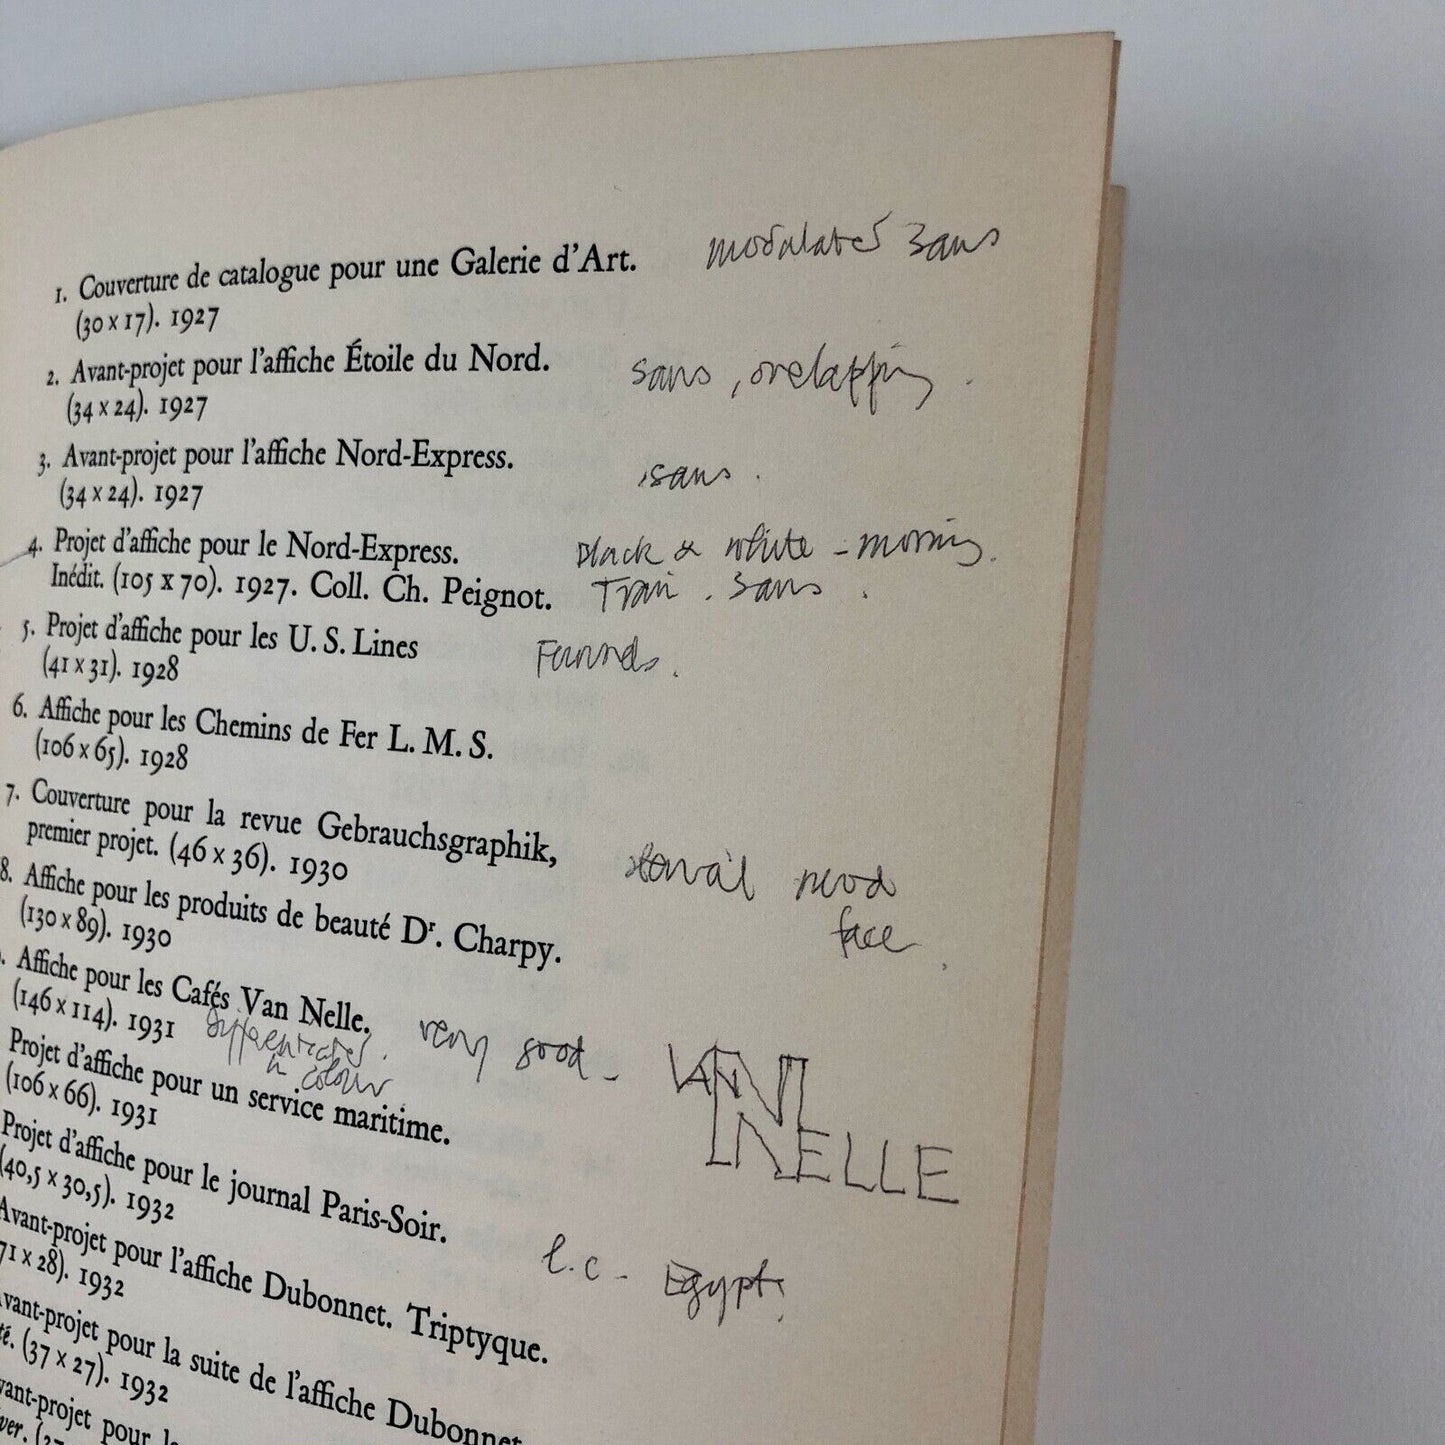 1. Couverture de catalogue pour une Galerie d'Art. modulated sans
(30 x 17). 1927
2. Avant-projet pour l'affiche Étoile du Nord. sans, overlapping.
(34 x 24). 1927
3. Avant-projet pour l'affiche Nord-Express. sans.
(34 x 24). 1927
4. Projet d'affiche pour le Nord-Express. black & white -
Inédit. (105 x 70). 1927. Coll. Ch. Peignot. Train. sans.
5. Projet d'affiche pour les U. S. Lines Funnels.
(41 x 31). 1928
6. Affiche pour les Chemins de Fer L. M. S.
(106 x 65). 1928
7. Couverture pour la revue Gebrauchsgraphik,
premier projet. (46 x 36). 1930
8. Affiche pour les produits de beauté Dr. Charpy.
face.
(130 x 89). 1930
. Affiche pour les Cafés Van Nelle. very good - VAN NELLE
(146 x 114). 1931 differentiated
in colour
Projet d'affiche pour un service maritime.
(106 x 66). 1931
Projet d'affiche pour le journal Paris-Soir. l.c - Egypt.
(40,5 x 30,5). 1932
Avant-projet pour l'affiche Dubonnet. Triptyque.
71 x 28). 1932
vant-projet pour la suite de l'affiche Dubonnet
té. (37 x 27). 1932
vant-projet pour
ver.